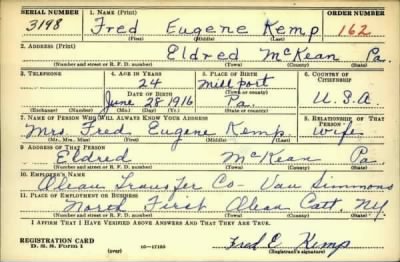 SERIAL NUMBER 1. NAME (Print) ORDER NUMBER
3198 Fred Eugene Kemp 162
(First) (Middle) (Last)
2. ADDRESS (Print)
Eldred McKean Pa.
(Number and street or R. F. D. number) (Town) (County) (State)
3. TELEPHONE 4. AGE IN YEARS 5. PLACE OF BIRTH 6. COUNTRY OF CITIZENSHIP
24 Millport
DATE OF BIRTH (Town or county)
June 28 1916 Pa. U.S.A.
(Exchange) (Number) (Mo.) (Day) (Yr.) (State or country)
7. NAME OF PERSON WHO WILL ALWAYS KNOW YOUR ADDRESS 8. RELATIONSHIP OF THAT PERSON
Mrs. Fred Eugene Kemp wife
(Mr., Mrs., Miss) (First) (Middle) (Last)
9. ADDRESS OF THAT PERSON
Eldred McKean Pa.
(Number and street or R. F. D. number) (Town) (County) (State)
10. EMPLOYER'S NAME
Olean Transfer Co - Van Simmons
11. PLACE OF EMPLOYMENT OR BUSINESS
North First Olean Catt. N.Y.
(Number and street or R. F. D. number) (Town) (County) (State)
I AFFIRM THAT I HAVE VERIFIED ABOVE ANSWERS AND THAT THEY ARE TRUE.
REGISTRATION CARD
D. S. S. Form 1 (over) 16-17105 Fred E. Kemp
(Registrant's signature)